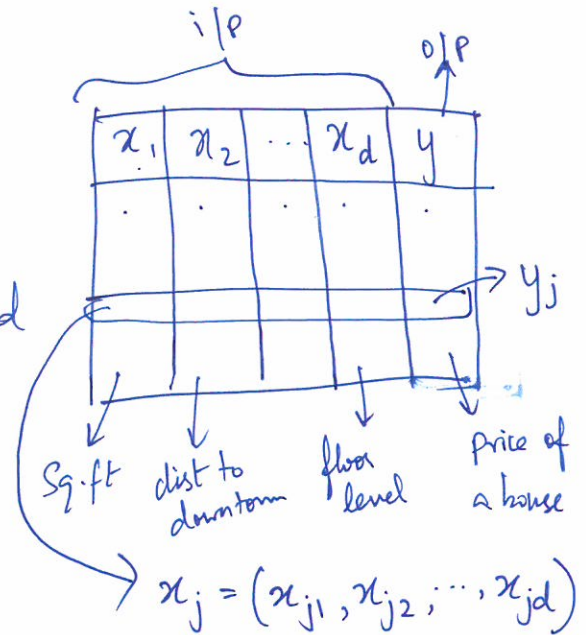 i/p
o/p
x₁ x₂ ... x_d y
. . . . .
d
y_j
Sq.ft dist to downtown floor level price of a house
x_j = (x_j1, x_j2, ..., x_jd)